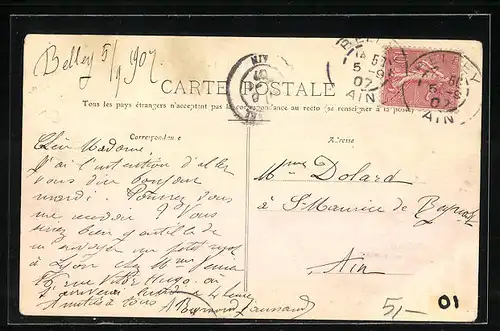 Belley 5/9 1907
CARTE POSTALE
Tous les pays étrangers n'acceptent pas la correspondance au recto (se renseigner à la poste)
Correspondance
Adresse
BELLEY
5 -9
07
AIN
BELLEY
5 -9
07
AIN
AIN
Chère Madame,
J'ai l'intention d'aller
vous dire bonjour
mardi. Pouvez vous
me recevoir ? Vous
seriez bien gentille de
m'envoyer un petit mot
à Lyon chez Mme
rue Victor Hugo. ou
4 heures
Amitiés à tous
Mme Dolard
à St Maurice de
Ain
5,-
01